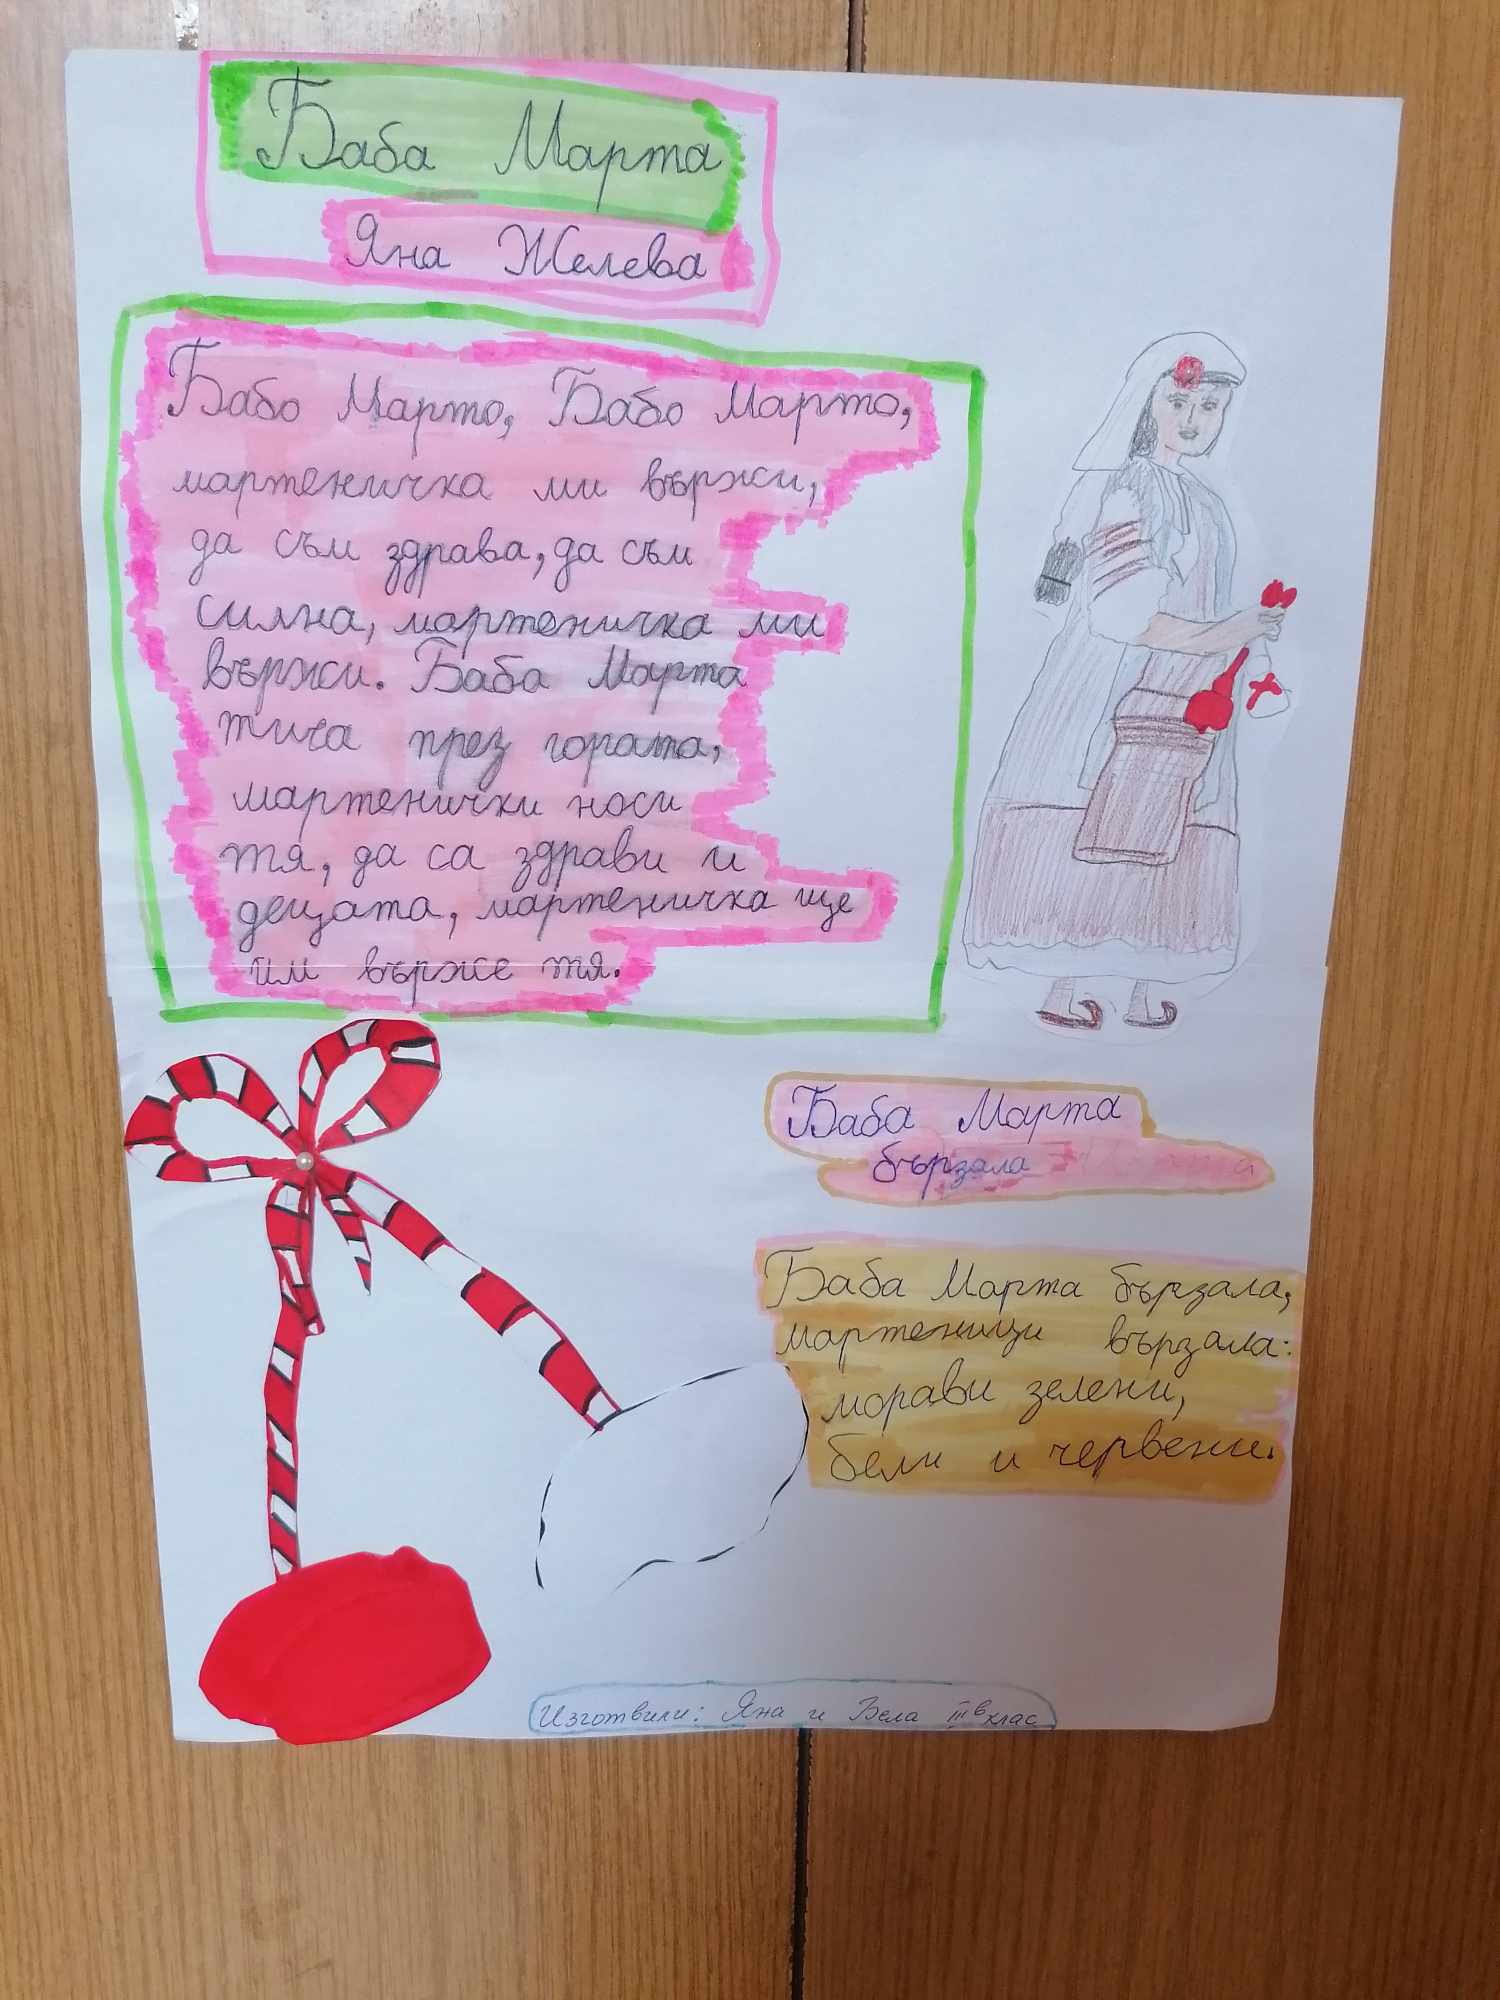 Баба Марта
Яна Желева
Бабо Марто, Бабо Марто,
мартеничка ми вържи,
да съм здрава, да съм
силна, мартеничка ми
вържи. Баба Марта
тича през гората,
мартенички носи
тя, да са здрави и
децата, мартеничка ще
им върже тя.
Баба Марта
бързала
Баба Марта бързала,
мартеници вързала:
морави зелени,
бели и червени.
Изготвили: Яна и Бела III в клас